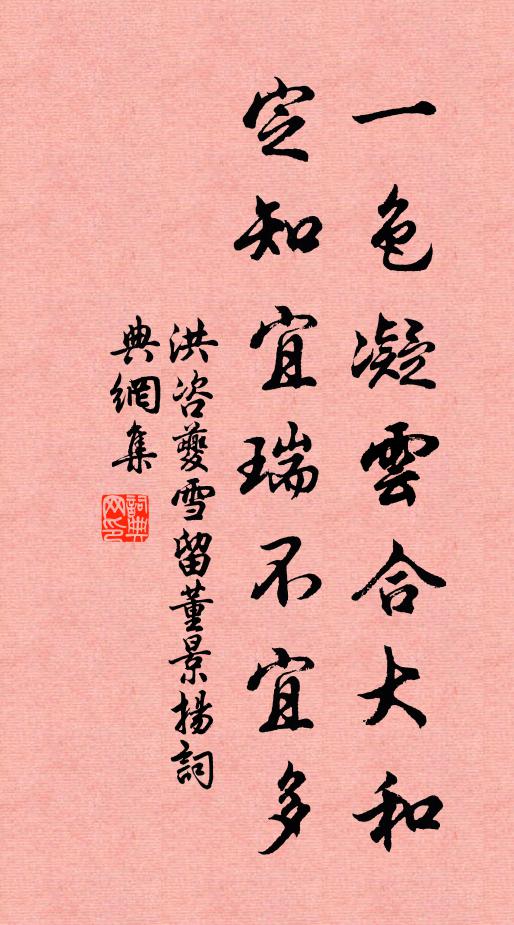 一色凝雲合大和
定知宜瑞不宜多
洪咨夔雪留董景揚詞
典網集
詞典
网印